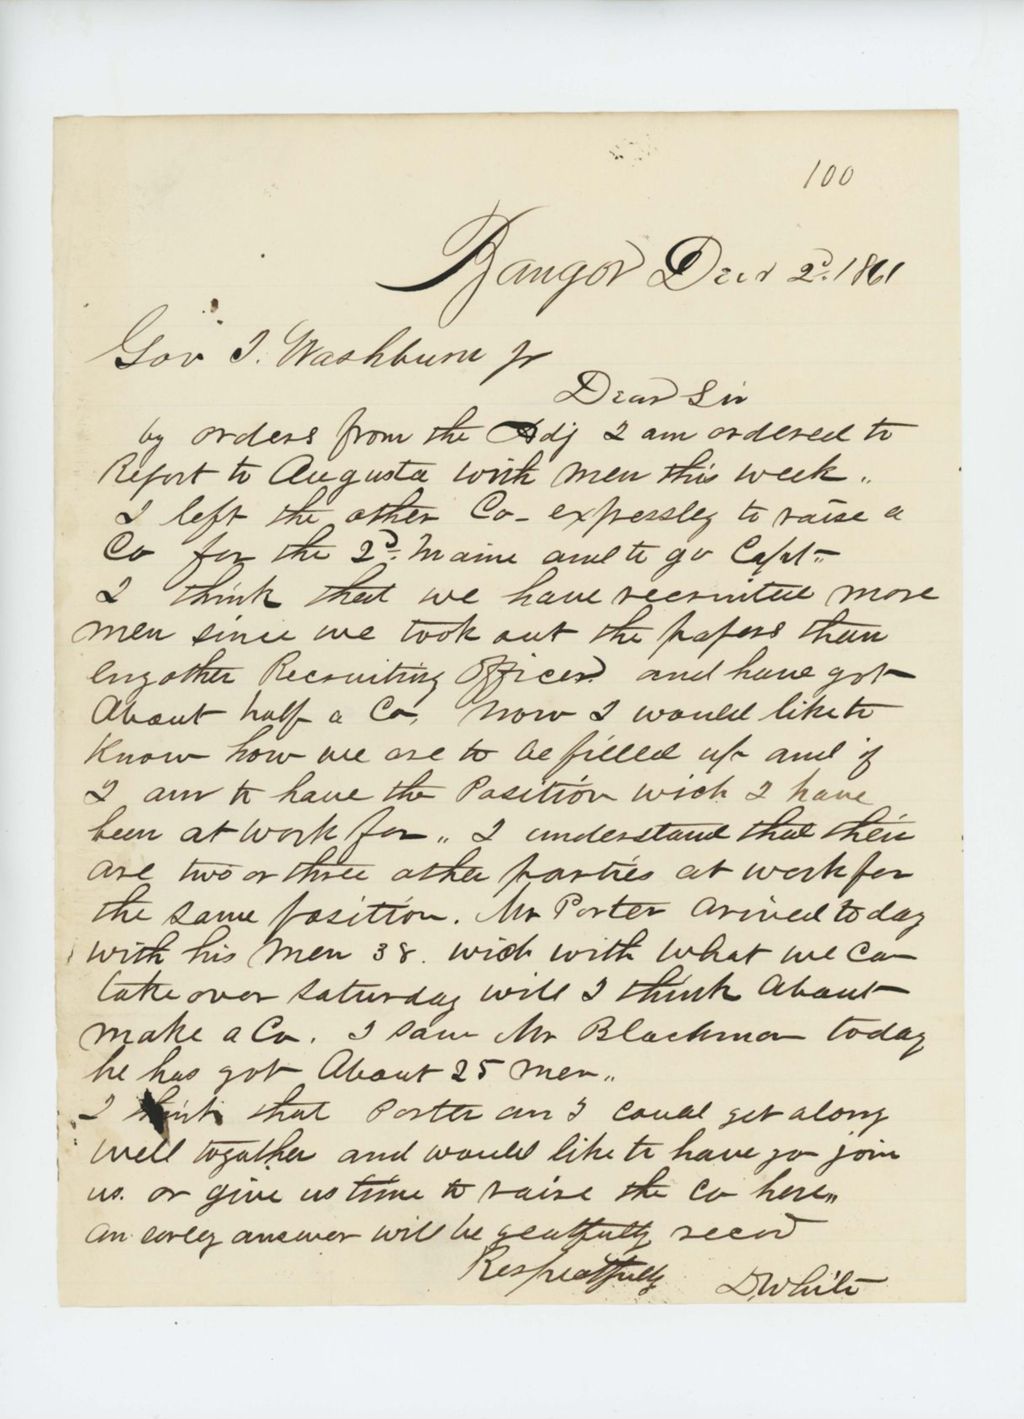 100
Bangor Decr 2d. 1861
Gov I. Washburn Jr
Dear Sir
by orders from the Adj I am ordered to
Report to Augusta with men this week „
I left the other Co - expressley to raise a
Co for the 2d. Maine and to go Capt „
I think that we have recruited more
men since we took out the papers than
eny other Recruiting Officer. and have got
About half a Co, Now I would like to
Know how we are to be filled up and if
I am to have the Position wich I have
been at work for „ I understand that their
are two or three other parties at work for
the same position. Mr Porter arived to day
with his men 38. wich with what we Ca
take over Saturday will I think About
make a Co. I saw Mr Blackman today
he has got About 25 men „
I think that Porter an I could get along
well together and would like to have yo join
us. or give us time to raise the Co here „
an earley answer will be recvd
Respectfully D White